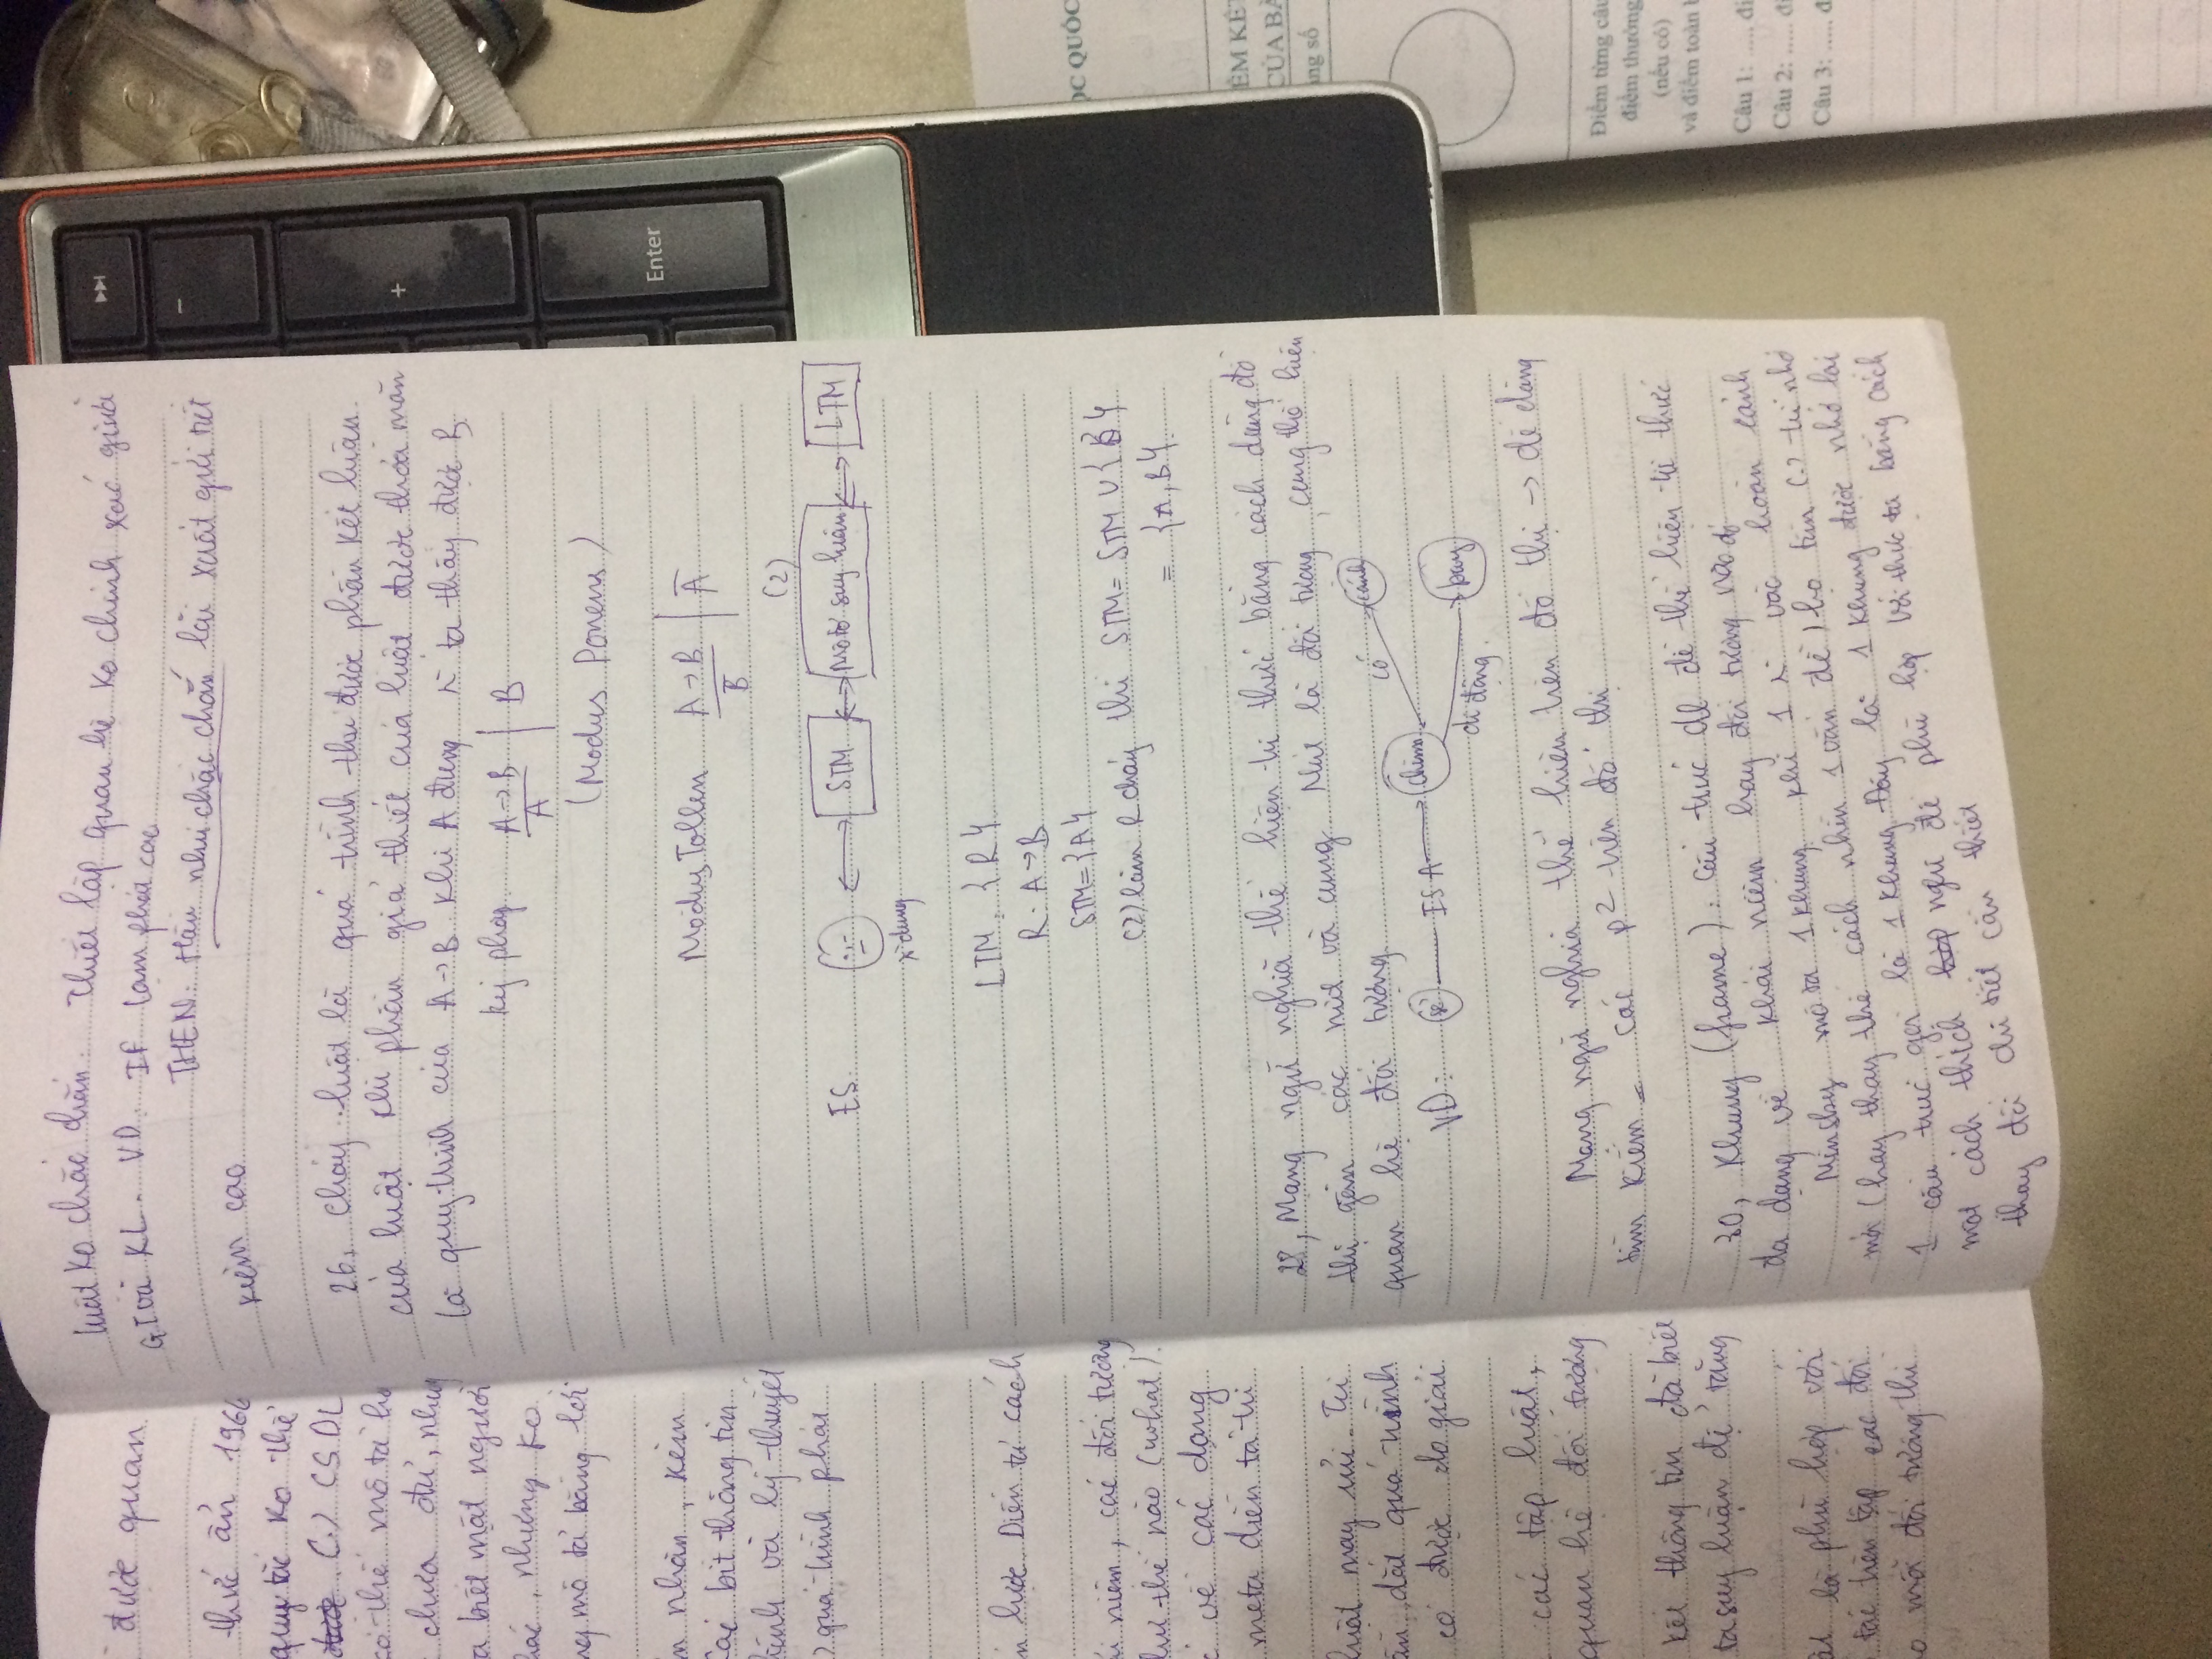 được quan
thức ẩn 1966
quy tắc ko thể
(.) CSDL
có thể mô tả
chưa đủ, nhưng
biết mặt người
nhưng ko
mô tả bằng lời
nhân, kèm
Các bit thông tin
và lý thuyết
quá trình phát
lược. Diễn tả cách
niệm, các đối tượng
thế nào (what).
về các dạng
meta diễn tả tri
luật may rủi. Tri
dắt quá trình
có được do giải
các tập luật,
quan hệ đối tượng
kết thông tin đã biết
ta suy luận để tăng
là phù hợp với
tác trên tập các đối
mỗi đối tượng thì
luật ko chắc chắn: Thiết lập quan hệ ko chính xác giữa
GT và KL. VD: If lạm phát cao
THEN: Hầu như chắc chắn lãi xuất gửi tiết
kiệm cao
26, Cháy luật là quá trình thu được phần kết luận
của luật khi phần giả thiết của luật được thỏa mãn
là quy trình của A → B khi A đúng ta thấy được B.
ký pháp A → B | B
A
(Modus Ponens)
Modus Tollen A → B | Ā
B̄
(2)
ES STM Môtơ suy luận LTM
dùng
LTM = {R}
R: A → B
STM = {A}
(2) làm R cháy thì STM = STM ∪ {B}
= {A, B}
28, Mạng ngữ nghĩa thể hiện tri thức bằng cách dùng đồ
thị gồm các nút và cung. Nút là đối tượng, cung thể hiện
quan hệ đối tượng
có cánh
VD: sẻ IS A chim
di động bay
Mạng ngữ nghĩa thể hiện trên đồ thị → dễ dàng
tìm kiếm = các p² trên đồ thị
30, Khung (frame): cấu trúc dl để thể hiện tri thức
đa dạng về khái niệm hay đối tượng nào đó
Minsky mô tả 1 khung khi 1 vào hoàn cảnh
mới (hay thay thế cách nhìn 1 vấn đề) họ tìm (.) trí nhớ
1 cấu trúc gọi là 1 khung. Đây là 1 khung được nhớ lại
một cách thích nghi để phù hợp với thực tế bằng cách
thay đổi chi tiết cần thiết
+
Enter
ỌC QUỐC
CỦA BÀ
số
Điểm từng câu
điểm thưởng
(nếu có)
và điểm toàn
Câu 1: .....
Câu 2: .....
Câu 3: .....